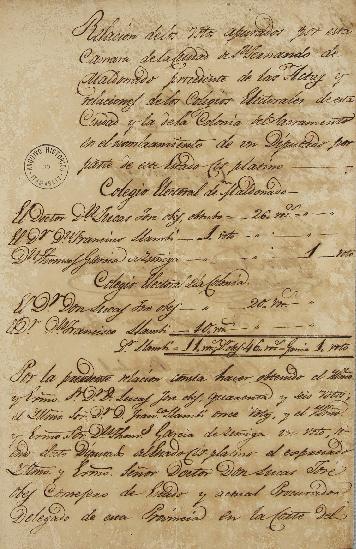 Relacion de los votos apurados por esta
Camara de la Ciudad de Sn. Fernando de
Maldonado procedente de las Actas y
relaciones de los Colegios Electorales de esta
Ciudad y la de la Colonia del Sacramento
en el nombramiento de un Diputado por
parte de este Estado Cis platino
ARCHIVO HISTORICO
Colegio Electoral de Maldonado
El Doctor Dn. Lucas Jose obes obtubo 26 vs.
El Dr. Dn. Francisco Llambi 1 voto
Dn. Thomas Garcia de Zuñiga 1 voto
Colegio Electoral de la Colonia
El Dr. Don Lucas Jose obes 20 vs.
El Dr. Dn. Francisco Llambi 10 vs.
Dr. Llambi 11 vs. Obes 46 vs. Garcia 1 voto
Por la precedente relacion consta haver obtenido el Illmo.
y Exmo. Sr. Dr. D. Lucas Jose obes quarenta y seis votos;
el Illmo. Sor. Dr. D. Franco. Llambi once votos, y el Illmo.
y Exmo. Sor. Dn. Thomas Garcia de Zuñiga un voto
Diputado el Estado Cisplatino el expresado
Illmo. y Exmo. Señor Doctor Don Lucas José
Obes Consejero de Estado y actual Procurador
Delegado de esta Provincia en la Corte del